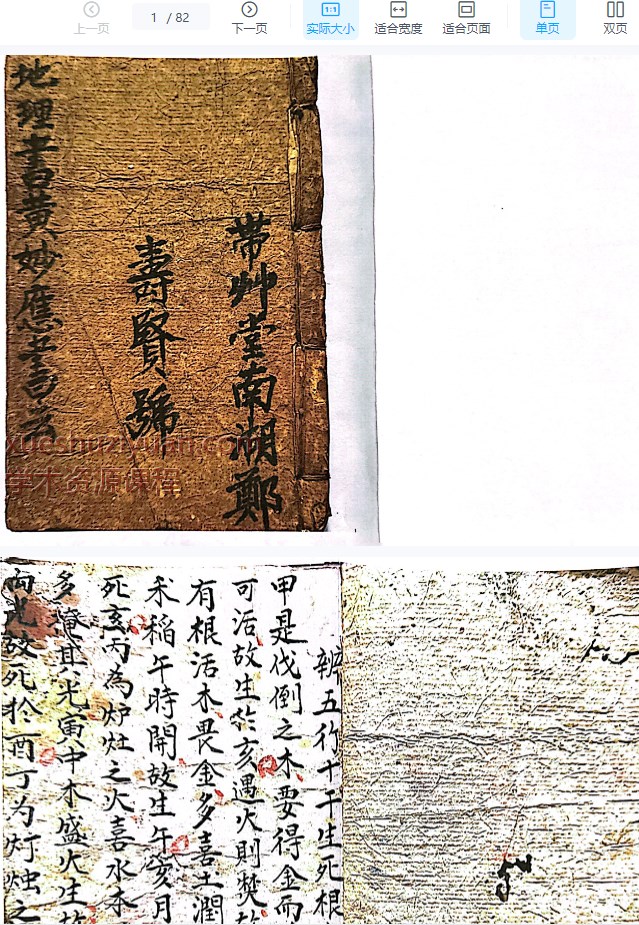 上一页
1 / 82
下一页
1:1
实际大小
适合宽度
适合页面
单页
双页
帶艸堂南湖鄭
壽賢號
地理書黃妙應
学术资源课程
辨五行十干生死根
甲是伐倒之木要得金而
可活故生於亥遇火則焚
有根活木畏金多喜土潤
禾稲午時開故生午亥月
死亥丙為炉灶之火喜水木
多掩其光寅中木盛火生
向光故死於酉丁为灯烛之